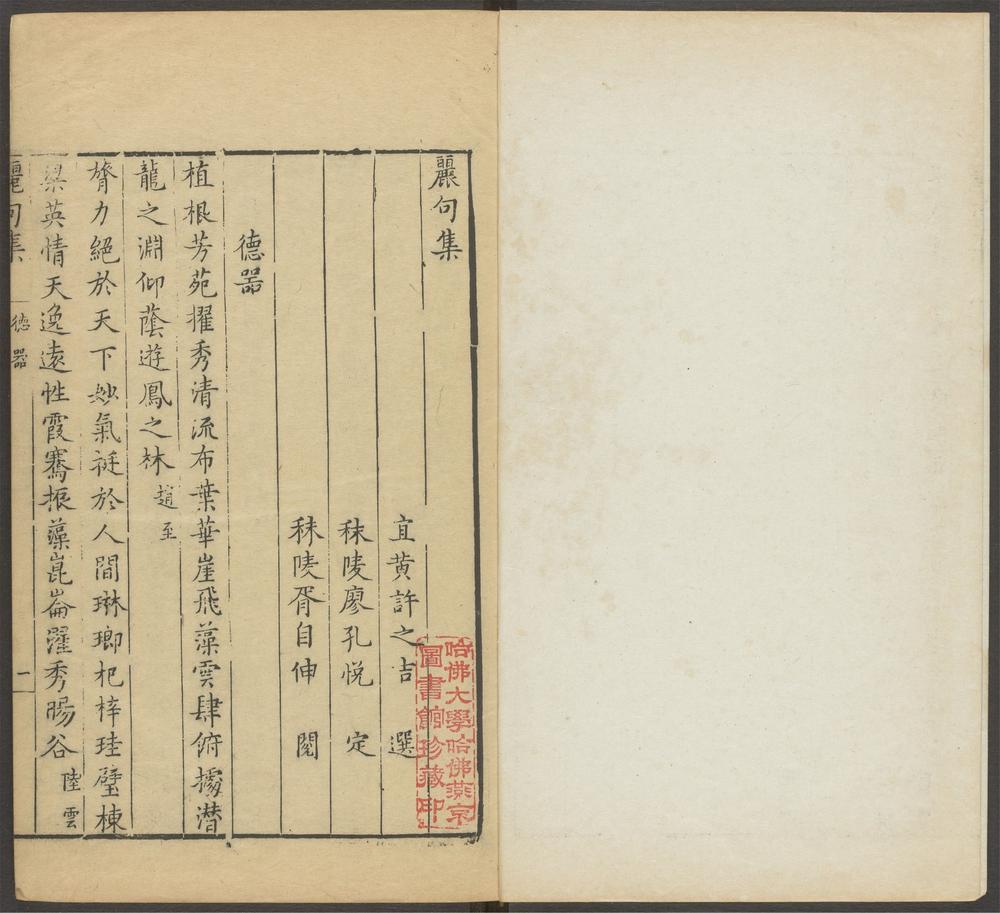 麗句集
宜黄許之吉　選
秣陵廖孔悅　定
秣陵胥自伸　閱
德器
植根芳苑擢秀清流布葉華崖飛藻雲肆俯據潛
龍之淵仰蔭遊鳳之林 趙至
膂力絕於天下妙氣挻於人間琳瑯杞梓珪璧棟
梁英情天逸遠性霞騫振藻崑崙濯秀暘谷 陸雲
麗句集
德器
一
哈佛大學哈佛燕京
圖書館珍藏印